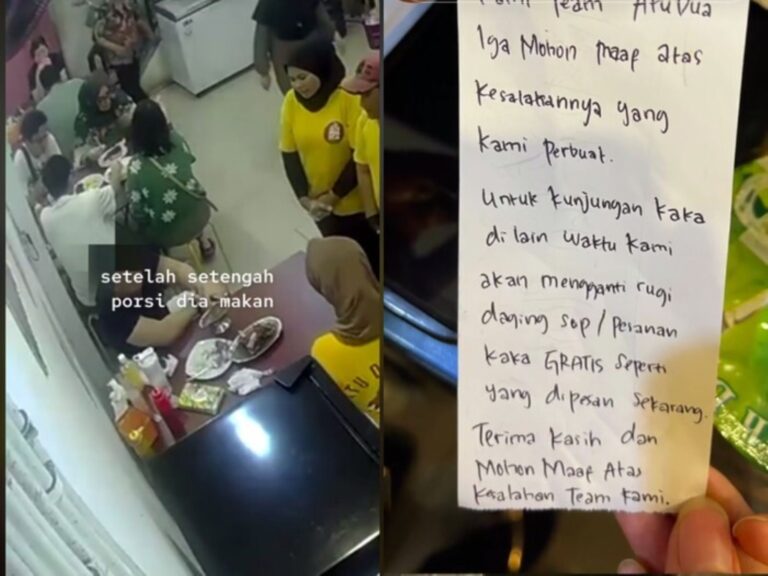 setelah setengah
porsi dia makan
Kami Team
Iga Mohon maaf atas
Kesalahannya yang
kami perbuat.
untuk kunjungan kaka
di lain waktu kami
akan mengganti rugi
daging sop / pesanan
kaka GRATIS seperti
yang dipesan sekarang.
Terima kasih dan
Mohon Maaf Atas
Kesalahan Team kami.